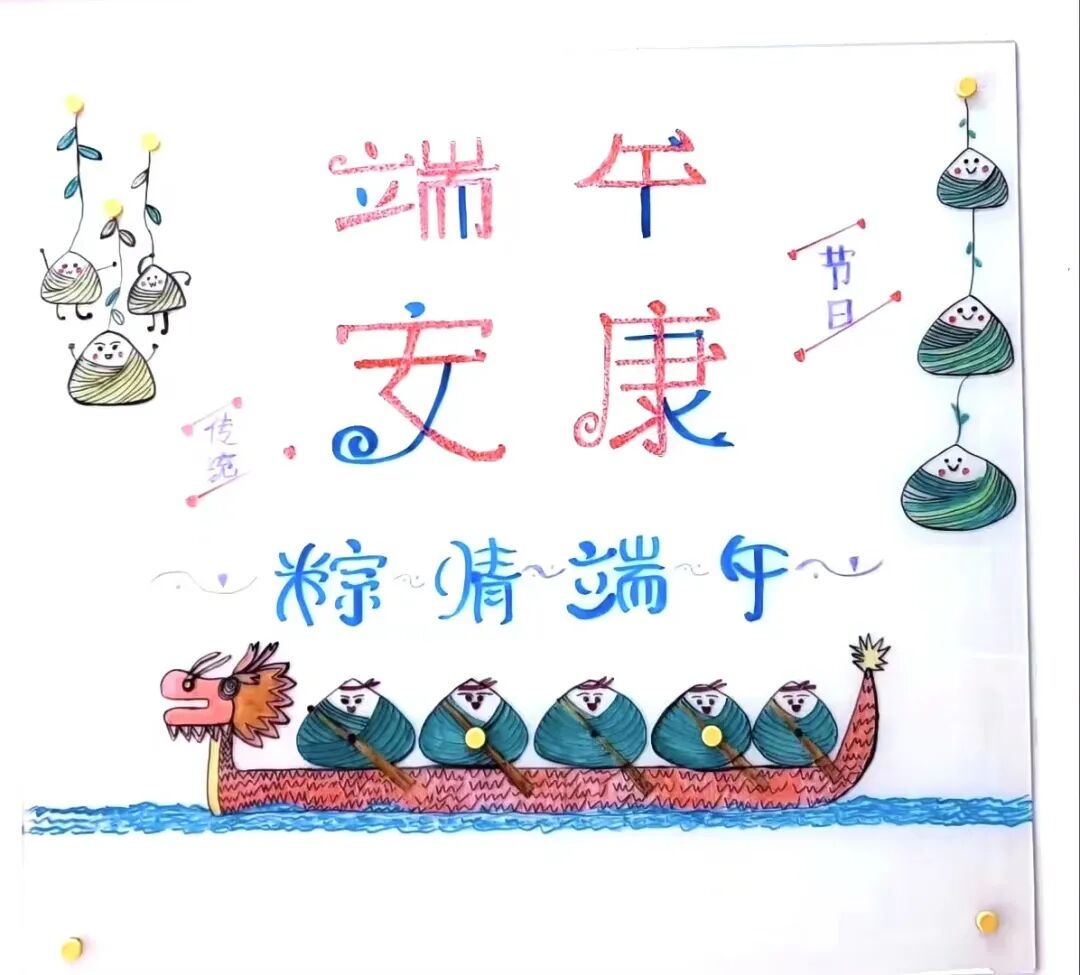 端午
安康
节日
传统
粽情端午